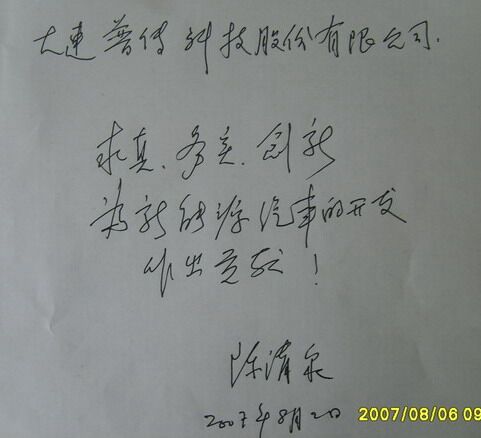 大连普传科技股份有限公司.
求真、务实、创新
为新能源汽车的开发
作出贡献！
陈清泉
2007年8月2日
2007/08/06 09